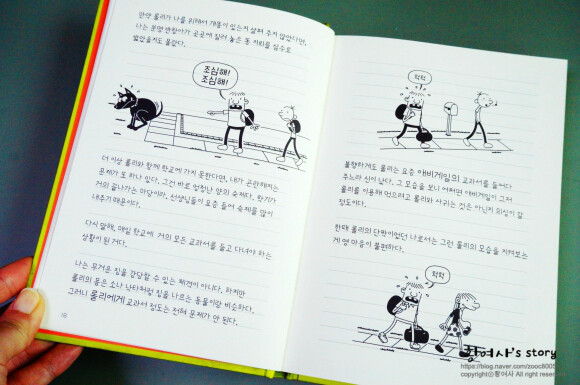 만약 롤리가 나를 위해서 개똥이 있는지 살펴 주지 않았다면,
나는 분명 맨창아가 곳곳에 질러 놓은 똥 지뢰를 실수로
밟았을지도 몰랐다.
조심해!
조심해!
더 이상 롤리와 함께 학교에 가지 못한다면, 내가 곤란해지는
문제가 또 하나 있다. 그건 바로 엄청난 양의 숙제다. 학기가
거의 끝나가는 마당이라, 선생님들이 요즘 들어 숙제를 많이
내주기 때문이다.
다시 말해, 매일 학교에 거의 모든 교과서를 들고 다녀야 하는
상황이 된 거다.
나는 무거운 짐을 감당할 수 있는 체격이 아니다. 하지만
롤리의 몸은 소나 낙타처럼 짐을 나르는 동물이랑 비슷하다.
그러니 롤리에게 교과서 정도는 전혀 문제가 안 된다.
18
헉헉
불행하게도 롤리는 요즘 애비게일의 교과서를 들어다
주느라 신이 났다. 그 모습을 보니 어쩌면 애비게일이 그저
롤리를 이용해 먹으려고 롤리와 사귀는 것은 아닌지 의심이 갈
정도이다.
한때 롤리의 단짝이었던 나로서는 그런 롤리의 모습을 지켜보는
게 영 마음이 불편하다.
헉헉
황여사's story
https://blog.naver.com/zooc8005
copyrightⓒ황여사 All right reserved